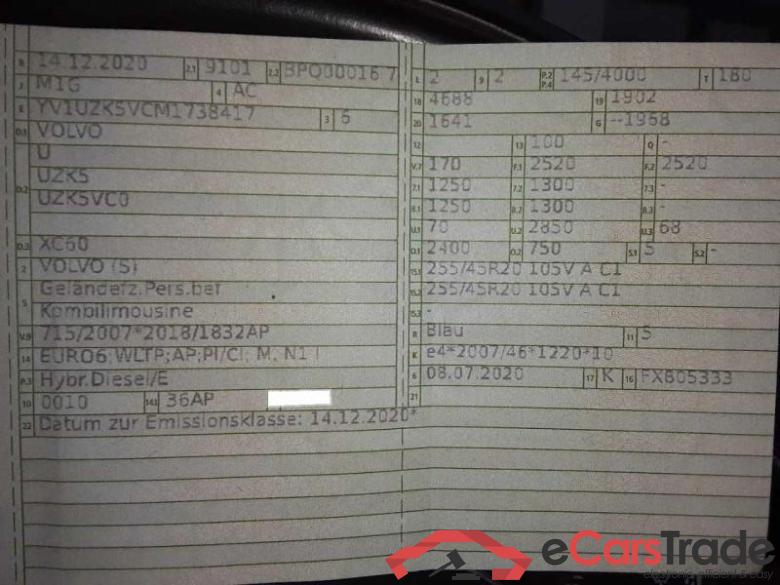 B 14.12.2020 2.1 9101 2.2 BPQ00016 7
J M1G 4 AC
E YV1UZK5VCM1738417 3 6
D.1 VOLVO
D.2 U
UZK5
UZK5VC0
D.3 XC60
2 VOLVO (S)
5 Geländefz.Pers.bef
Kombilimousine
V.9 715/2007*2018/1832AP
14 EURO6;WLTP;AP;PI/CI; M, N1 I
P.3 Hybr.Diesel/E
10 0010 14.1 36AP
22 Datum zur Emissionsklasse: 14.12.2020*
L 2 9 2 P.2 P.4 145/4000 T 180
18 4688 19 1902
20 1641 G --1968
12 13 100 Q -
V.7 170 F.1 2520 F.2 2520
7.1 1250 7.2 1300 7.3 -
8.1 1250 8.2 1300 8.3 -
U.1 70 U.2 2850 U.3 68
O.1 2400 O.2 750 S.1 5 S.2 -
15.1 255/45R20 105V A C1
15.2 255/45R20 105V A C1
15.3 -
R Blau 11 5
K e4*2007/46*1220*10
6 08.07.2020 17 K 16 FX805333
21
eCarsTrade